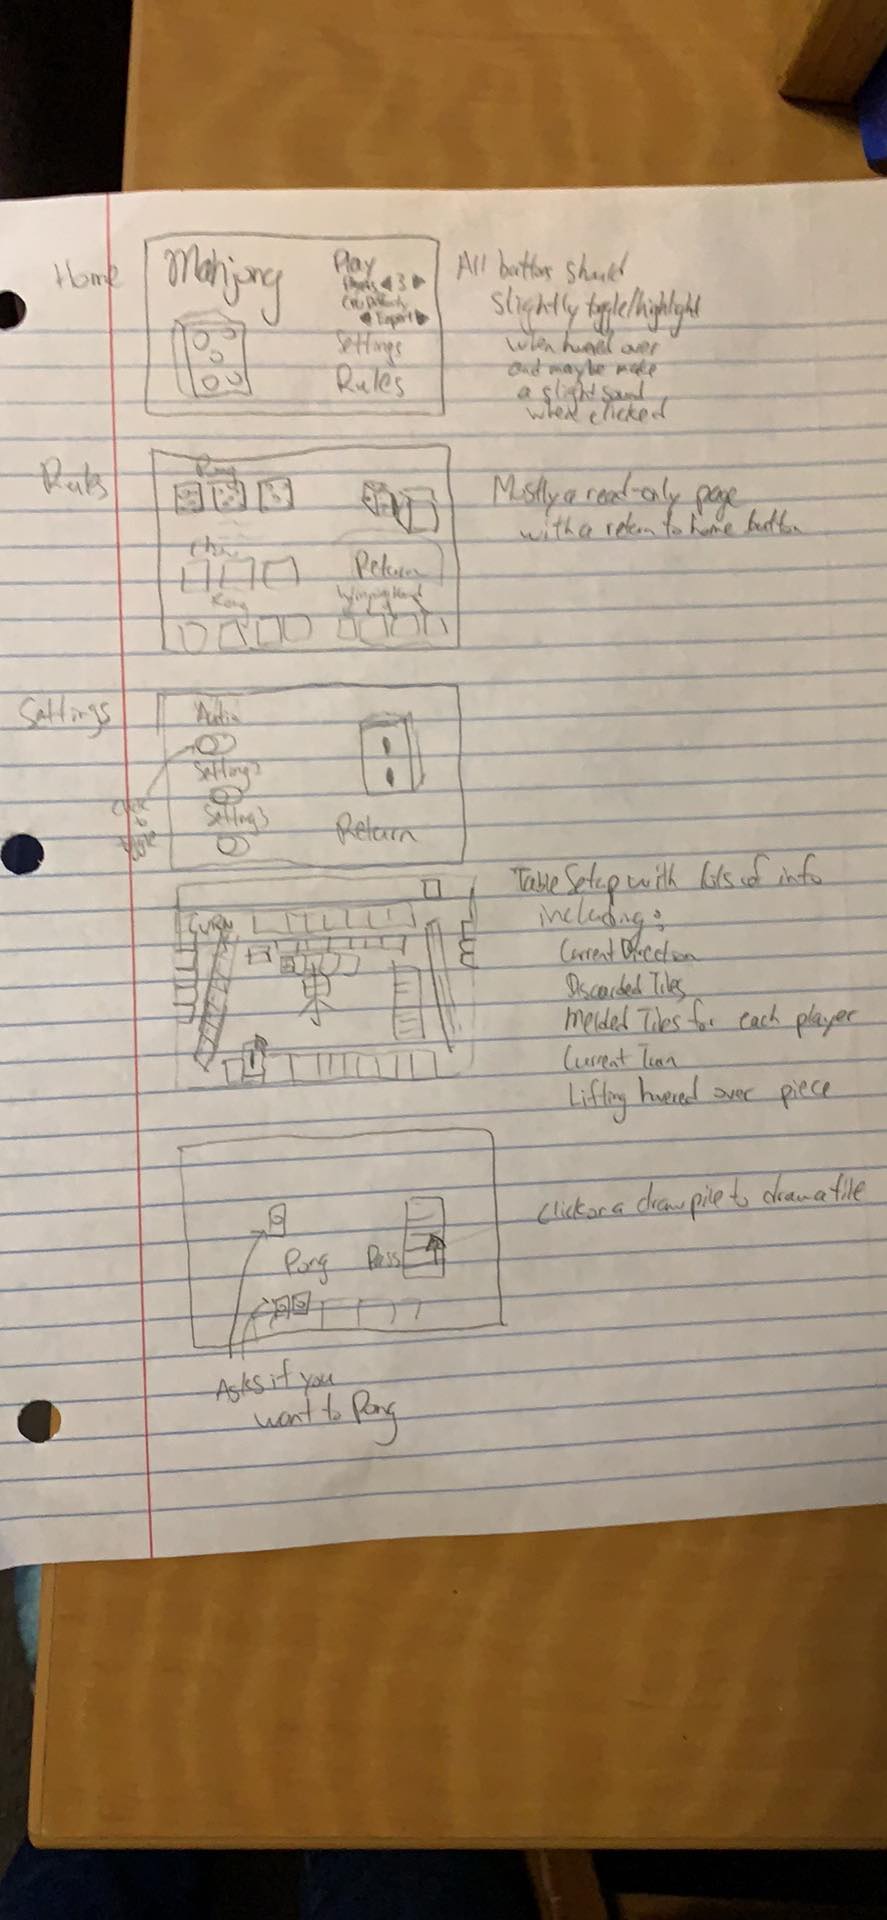 Home
Mahjong
Play
Players ◀ 3 ▶
CPU Difficulty
◀ Expert ▶
Settings
Rules
All buttons should
slightly toggle/highlight
when hovered over
and maybe make
a slight sound
when clicked
Rules
Pong
Chi
Return
Kong
Winning Hand
Mostly a read-only page
with a return to home button
Settings
Audio
Setting 2
Setting 3
Click
to
toggle
Return
Table Setup with lots of info
including:
Current Direction
Discarded Tiles
Melded Tiles for each player
Current Turn
Lifting hovered over piece
東
Click on a draw pile to draw a tile
Pong Pass
Asks if you
want to Pong